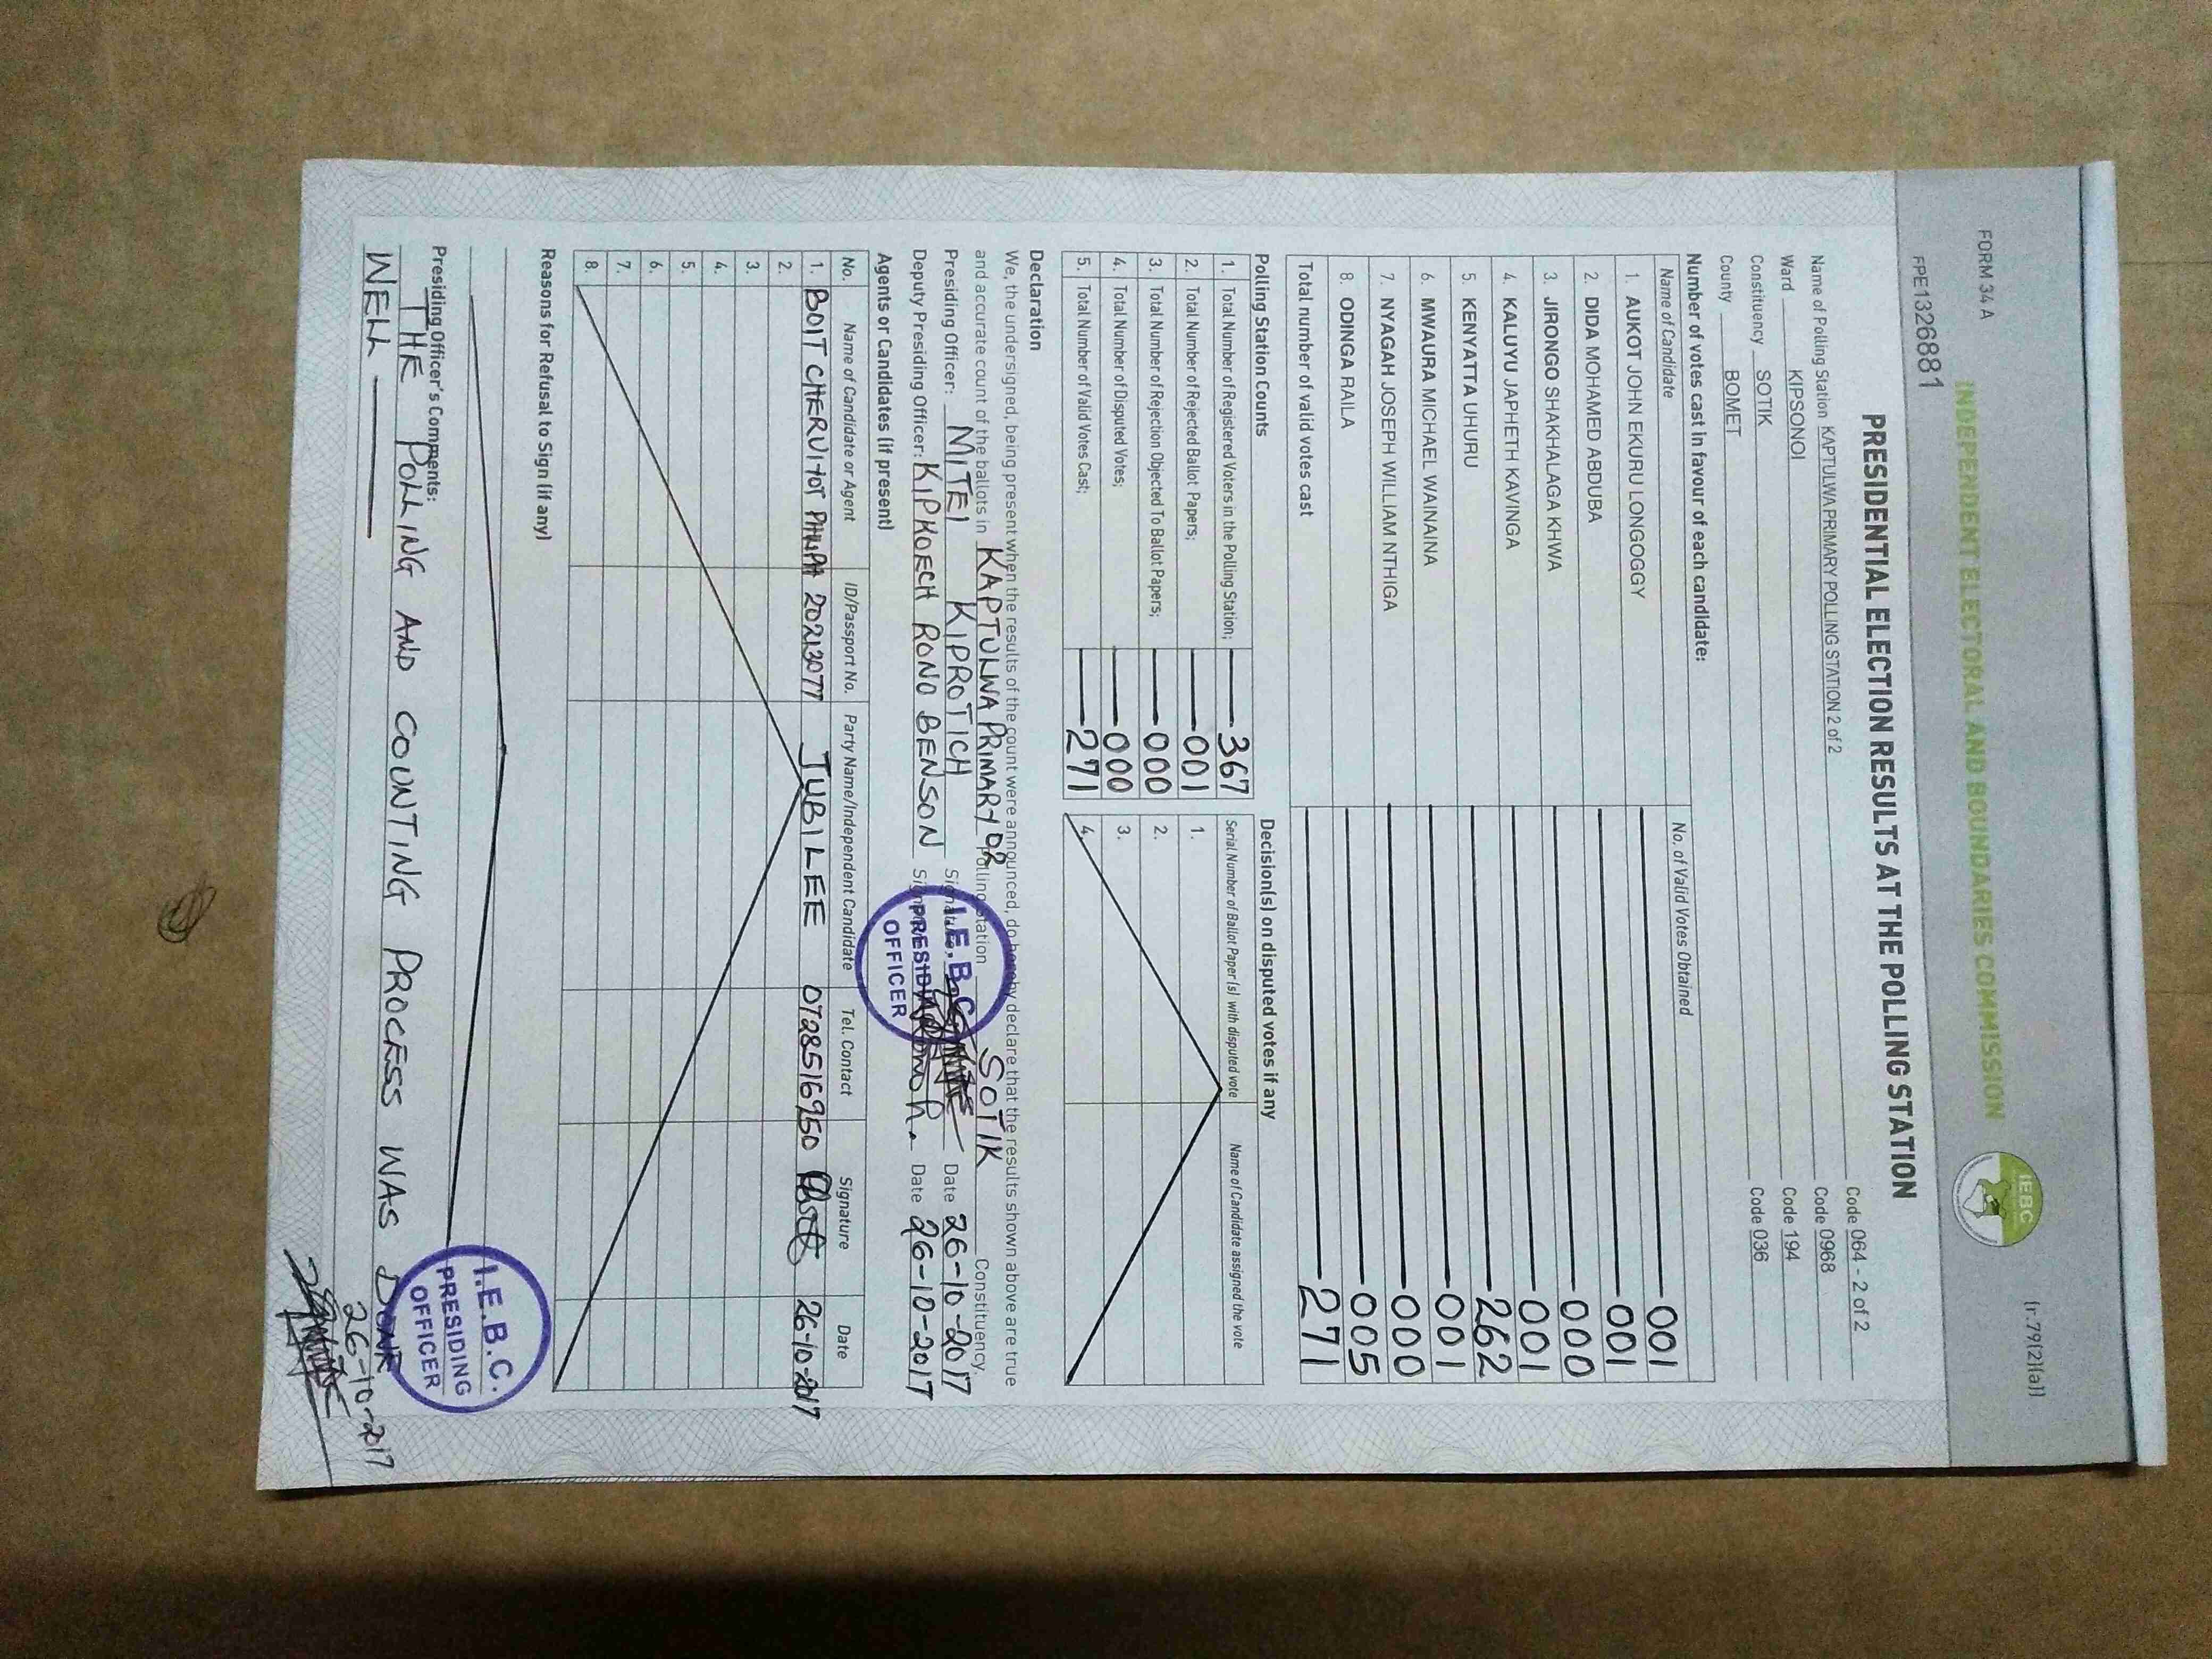 FORM 34 A
(r.79(2)(a))
INDEPENDENT ELECTORAL AND BOUNDARIES COMMISSION
IEBC
FPE1326881
PRESIDENTIAL ELECTION RESULTS AT THE POLLING STATION
Name of Polling Station KAPTULWA PRIMARY POLLING STATION 2 of 2 Code 064 - 2 of 2
Ward KIPSONOI Code 0968
Constituency SOTIK Code 194
County BOMET Code 036
Number of votes cast in favour of each candidate:
Name of Candidate No. of Valid Votes Obtained
1. AUKOT JOHN EKURU LONGOGGY 001
2. DIDA MOHAMED ABDUBA 001
3. JIRONGO SHAKHALAGA KHWA 000
4. KALUYU JAPHETH KAVINGA 001
5. KENYATTA UHURU 262
6. MWAURA MICHAEL WAINAINA 001
7. NYAGAH JOSEPH WILLIAM NTHIGA 000
8. ODINGA RAILA 005
Total number of valid votes cast 271
Polling Station Counts
1. Total Number of Registered Voters in the Polling Station; 367
2. Total Number of Rejected Ballot Papers; 001
3. Total Number of Rejection Objected To Ballot Papers; 000
4. Total Number of Disputed Votes; 000
5. Total Number of Valid Votes Cast; 271
Decision(s) on disputed votes if any
Serial Number of Ballot Paper(s) with disputed vote Name of Candidate assigned the vote
1.
2.
3.
4.
Declaration
We, the undersigned, being present when the results of the count were announced, do hereby declare that the results shown above are true
and accurate count of the ballots in KAPTULWA PRIMARY 02 Polling Station SOTIK Constituency
Presiding Officer: MITEI KIPROTICH Signature Date 26-10-2017
Deputy Presiding Officer: KIPKOECH RONO BENSON Date 26-10-2017
I.E.B.C.
PRESIDING
OFFICER
Agents or Candidates (if present)
No. Name of Candidate or Agent ID/Passport No. Party Name/Independent Candidate Tel. Contact Signature Date
1. BOIT 20213077 JUBILEE 0728516950 26-10-2017
2.
3.
4.
5.
6.
7.
8.
Reasons for Refusal to Sign (if any)
Presiding Officer's Comments:
THE POLLING AND COUNTING PROCESS WAS DONE
WELL
I.E.B.C.
PRESIDING
OFFICER
26-10-2017